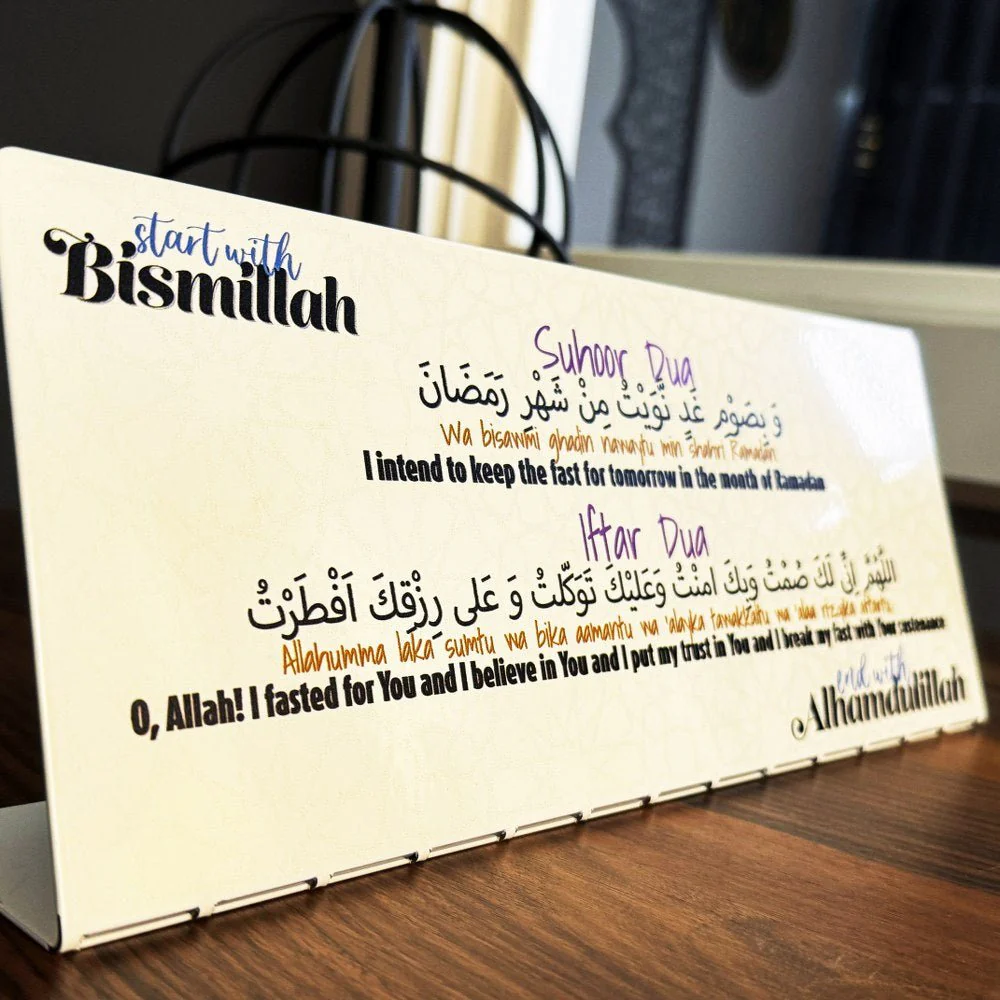 start with
Bismillah
Suhoor Dua
وَ بِصَوْمِ غَدٍ نَّوَيْتُ مِنْ شَهْرِ رَمَضَانَ
Wa bisawmi ghadin nawaytu min shahri Ramadan
I intend to keep the fast for tomorrow in the month of Ramadan
Iftar Dua
اللَّهُمَّ اِنِّى لَكَ صُمْتُ وَبِكَ امنْتُ وَعَلَيْكَ تَوَكَّلتُ وَ عَلى رِزْقِكَ اَفْطَرْتُ
Allahumma laka sumtu wa bika aamantu wa 'alayka tawakkaltu wa 'alaa rizqika aftartu
O, Allah! I fasted for You and I believe in You and I put my trust in You and I break my fast with Your sustenance
end with
Alhamdulillah